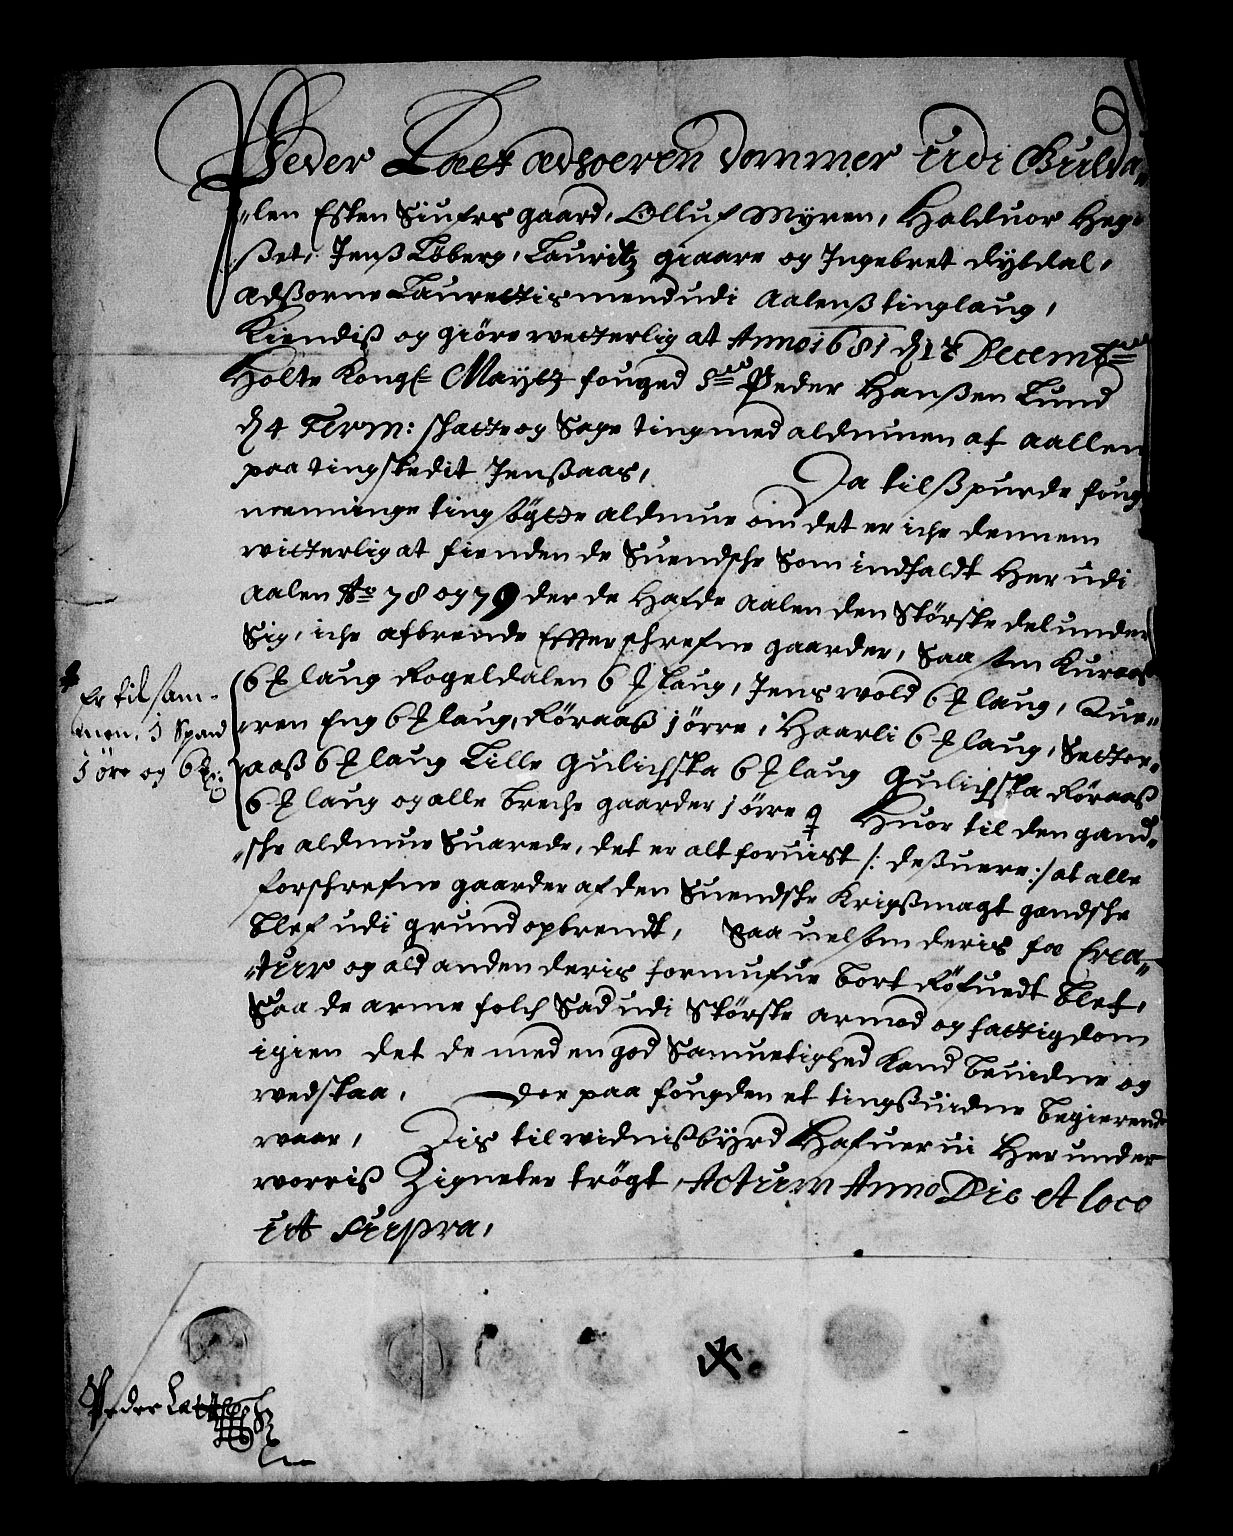 Peder Lact adsoeren dommer udi Gulda-
"len Esten Siufrs gaard, Olluf Myren, Halduor Heg-
ßet, Jenß Löberg, Lauritz giaare og Ingebret Rytdal,
adßorne Laurettis mend udi Aalenß tinglaug,
Kiendiß og giöre witterlig at Anno 1681 d 17 Decemb:
Holte Kongl: Maytz fouged Sr Peder Hanßen Lund
d 4 Term: skatte og Sage ting med aldmuen af Aallen
paa tingstedit Jenßaas, Da tilßpurde foug
neruninge ting søgte aldmue om det er iche dennem
witterlig at fienden de Suendsche Som indfaldt Her udi
Aalen Ao 78 og 79 der de Hafde Aalen den Störste del under
Sig, iche afbrende Effterschrefne gaarder, Saa som Kuraas
6 laug Rogeldalen 6 laug, Jenswold 6 laug, Kue-
"ren Eng 6 laug, Röraaß 1 örre, Haarli 6 laug, Setter-
"aaß 6 laug Lille Gulichsta 6 laug Gulichsta Röraaß
6 laug og alle breche gaarder 1 örre Huor til den gand-
"sche aldmue Suarede, det er alt foruist /: deßuere :/ at alle
forschrefne gaarder af den Suendsche Krigßmagt gandsche
blef udi grund opbrendt, Saa uel som deris fæ Crea-
"tuir og ald anden deris formufue bort Röfuedt blef,
Saa de arme folch Sad udi Störste armod og fattigdom
igien det de med en god Samuetighed Kand beuidne og
wedstaa, Der paa fougden et tingßuidne begierend
waar, Dis til widnißbyrd Hafuer ui Her under
worriß Zigneter trögt, Actum Anno Die et loco
ut supra,
Er til sam-
men, 3 Spand
1 öre og 6
Peder Lact